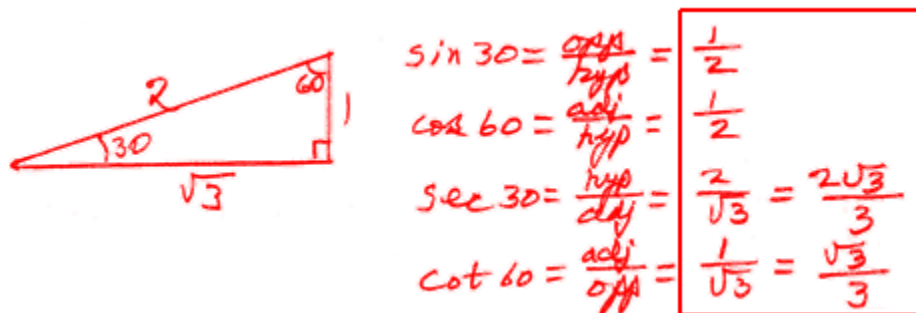 2
60
1
30
√3
sin 30 = opp/hyp = 1/2
cos 60 = adj/hyp = 1/2
sec 30 = hyp/adj = 2/√3 = 2√3/3
cot 60 = adj/opp = 1/√3 = √3/3